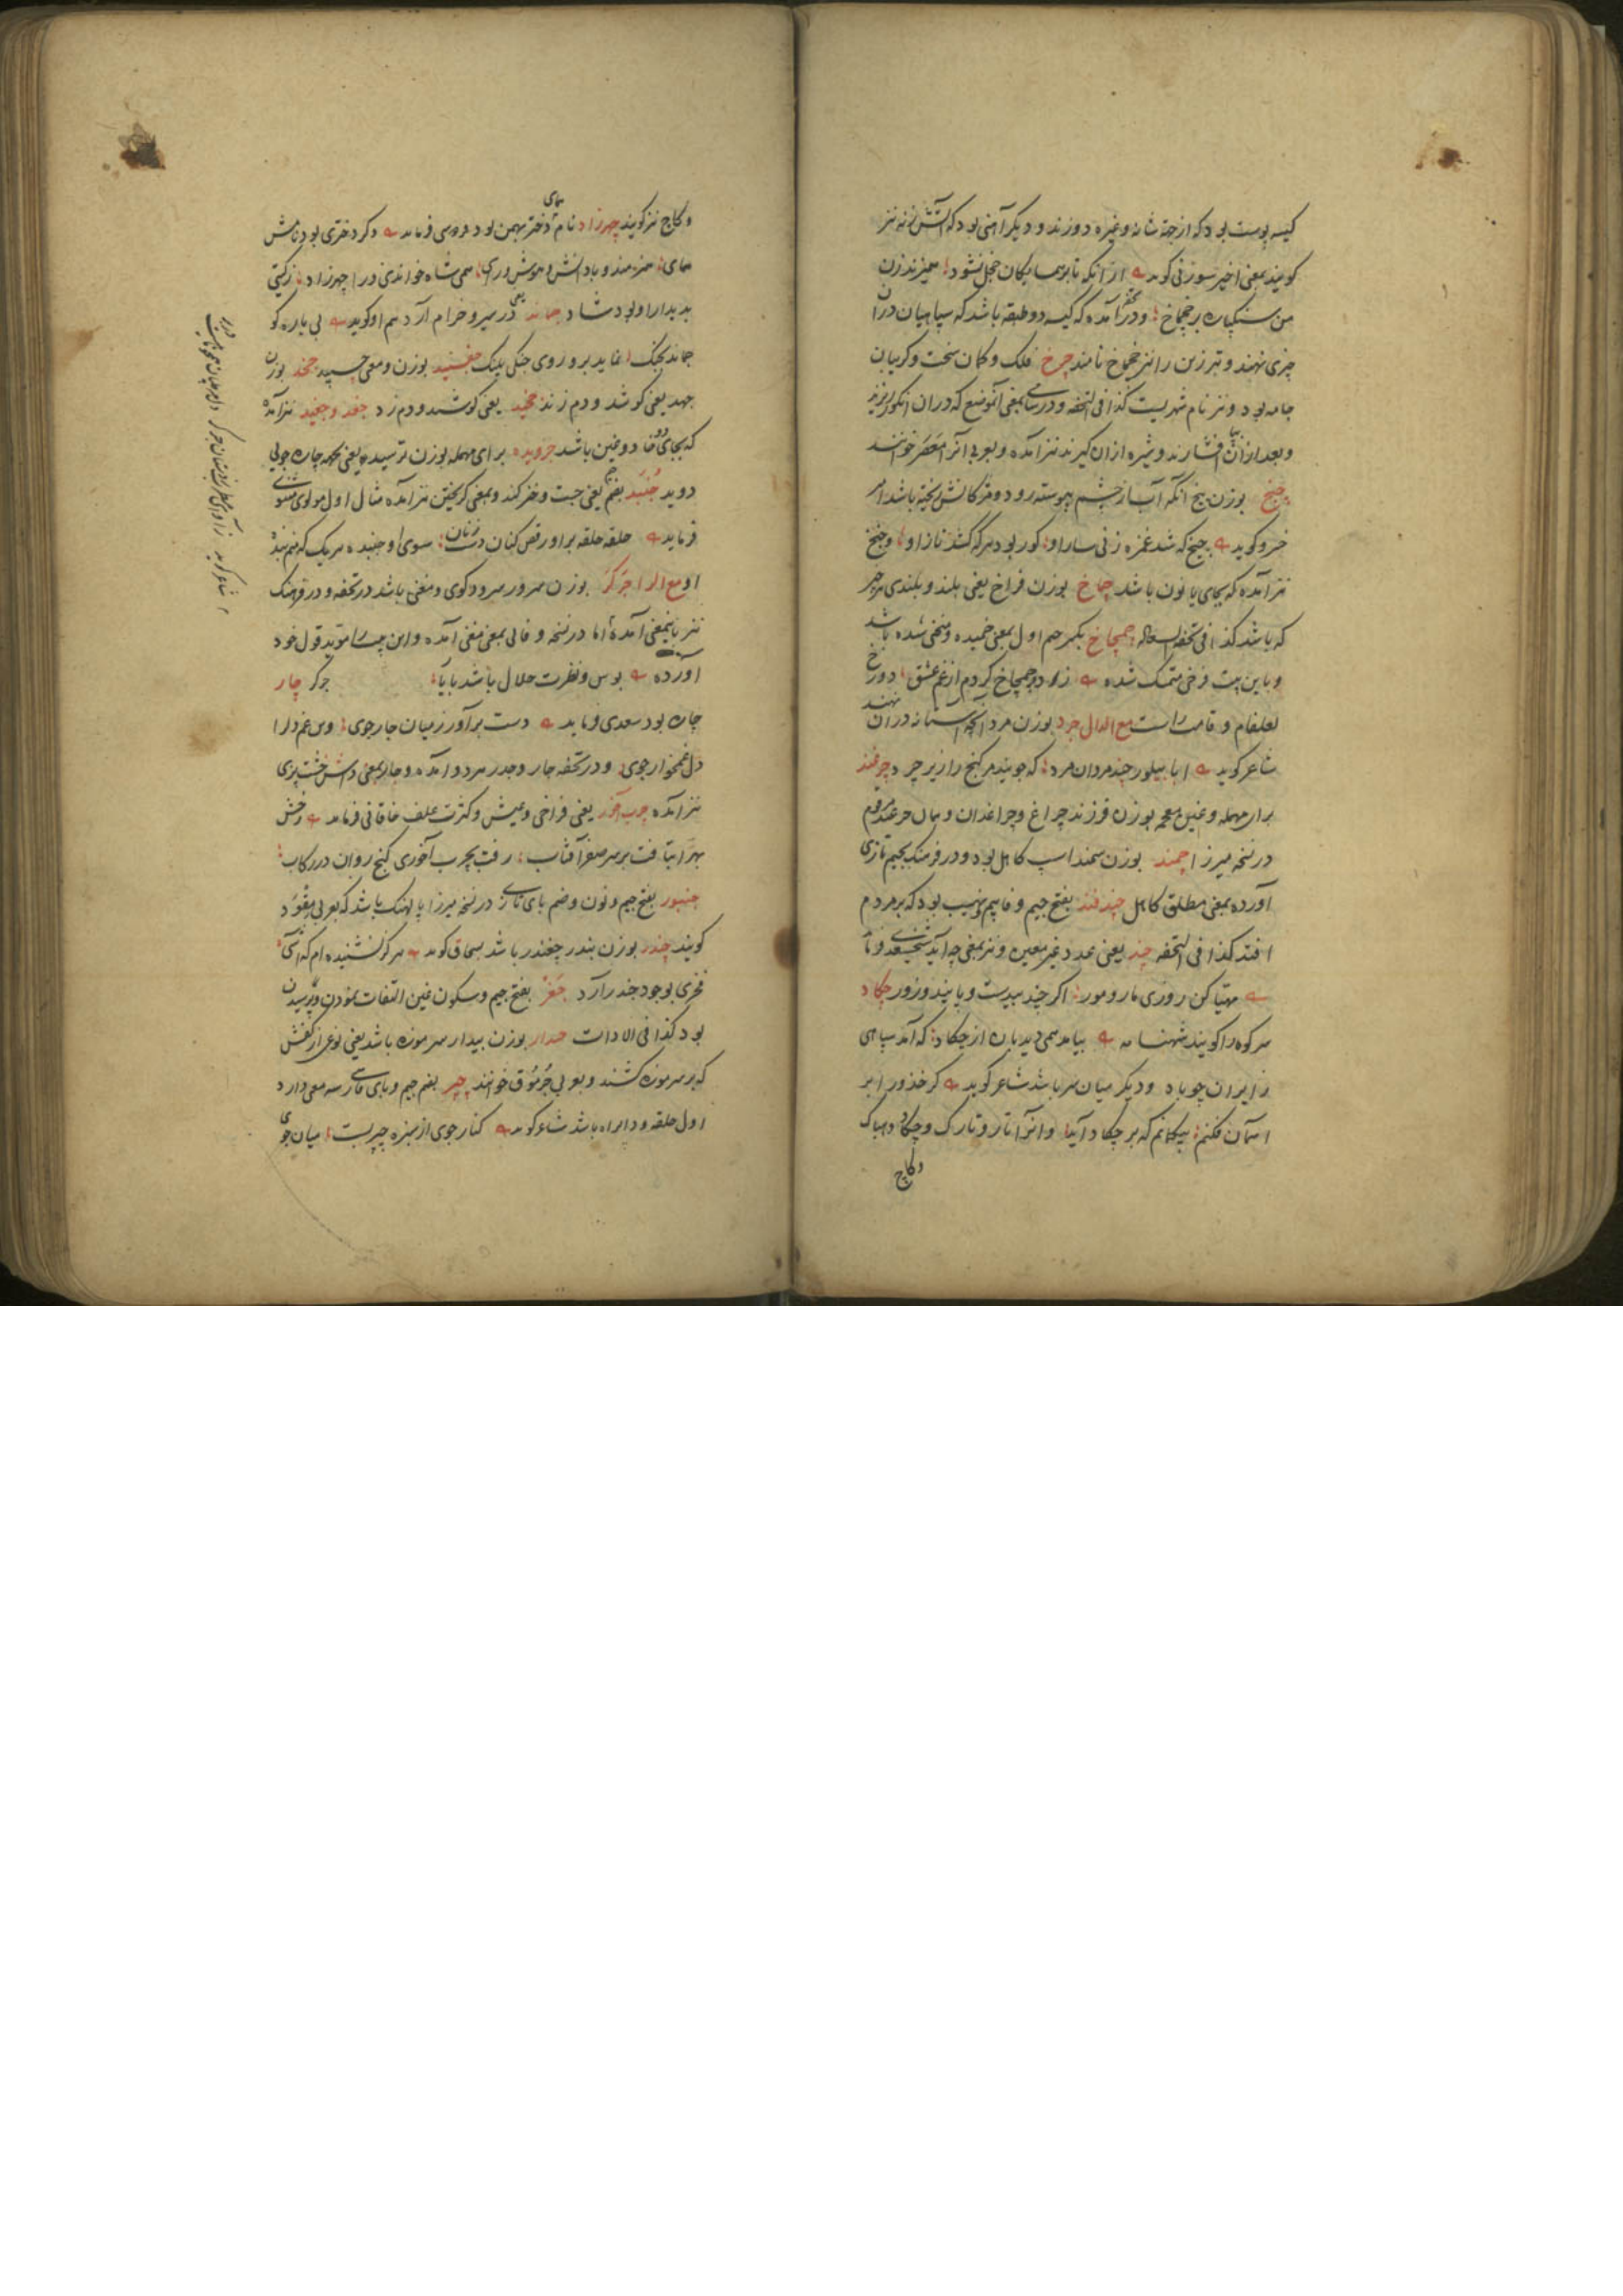 کیسه پوست بود که از جهة شانه و غیره دوزند و دیگر آهنی بود که آتش زنه نیز
کویند بمعنی اخیر سوزنی کوید از آنکه تا بر همسایکان خجل نشود همیزند زن
من سنکپاره بر چخماخ و در آمده که کیسه دو طبقه باشد که سپاهیان در آن
چیزی نهند و تبرزین را نیز چخماخ نامند چرخ فلک و کمان سخت و کریبان
جامه بود و نیز نام شهریست کذا فی التحفه و در بمعنی آنموضع که در ان انکور ریزند
و بعد از آن بپا افشارند و شیره از ان کیرند نیز آمده و بعربی آنرا معصر خوانند
چیخ بوزن میخ آنکه آب از چشم پیوسته رود و مژکانش ریخته باشد امیر
خسرو کوید چیخ که شد غمزه زنی سار او کور بود هر که کشد ناز او و جنخ
نیز آمده که بجای یا نون باشد چاخ بوزن فراخ یعنی بلند و بلندی هر چیز
که باشد کذا فی تحفة السعاده چمچاخ بکسر جیم اول بمعنی خمیده و منحنی شده باشد
و باین بیت فرخی متمسک شده زاد و چمچاخ کردم از غم عشق دو رخ
لعلفام و قامت راست مع الدال چرد بوزن مرد آنچه آستانه در ان نهند
شاعر کوید ابا بیلور چند مردان مرد که جویند مر کنج را زیر چرد چرغند
برای مهمله و غین معجمه بوزن فرزند چراغ و چراغدان و بیان چرغند مرقوم
در نسخه میرزا چمند بوزن سمند اسپ کاهل بود و در فرهنک بجیم تازی
آورده بمعنی مطلق کاهل چپدفند بفتح جیم و فا بیم و نهیب بود که بر مردم
افتد کذا فی التحفه چند یعنی عدد غیر معین و نیز بمعنی چه آید شیخ سعدی فرماید
مهیا کن روزی مار و مور اکر چند بیدست و پایند و زور چکاد
سر کوه را کویند شهنامه بیامد همی دیدبان از چکاد که آمد سپاهی
ز ایران چو باد و دیکر میان سر باشد شاعر کوید کر خدو را بر
آسمان فکنم بیکمانم که بر چکاد آید و آنرا تار و تارک و چکاده و هباک
وکاج
و کاج نیز کویند چهرزاد نام همای دختر بهمن بود فردوسی فرماید دکر دختری بود نامش
همای هنرمند و با دانش و هوش و رای همی شاه خواندی ورا چهرزاد ز کیتی
بدیدار او بود شاد چماند یعنی در سیر و خرام آرد هم او کوید بی باره کو
چماند بجنک نماید برو روی جنکی پلنک چفسید بوزن و معنی چسپید چخد بوزن
جهد یعنی کوشد و دم زند چخید یعنی کوشید و دم زد چغد و چغید نیز آمده
که بجای خا در دو غین باشد چرویده برای مهمله بوزن ترسیده یعنی همه چاره جوئی
دوید جنبد بضم جیم یعنی جست و خیز کند و بمعنی کریختن نیز آمده مثال اول مولوی مثنوی
فرماید حلقه حلقه بر او رقص کنان دست زنان سوی او جنبد هر یک که منم بندهٔ
او مع الرا چرکر بوزن سرور سرودکوی و مغنی باشد در تحفه و در فرهنک
نیز باینمعنی آمده اما در نسخه وفائی بمعنی مفتی آمده و این بیت را مؤید قول خود
آورده بوس و نظرت حلال باشد باری چرکر چار
چاره بود سعدی فرماید دست برآور ز میان چار جوی وین غم دل را
دل غمخوار جوی و در تحفه چار و چدر هر دو آمده و چار بمعنی داش خشت پزی
نیز آمده چرب آخور یعنی فراخی و عیش و کثرت علف خاقانی فرماید رخش
بهرّا بتافت بر سر صفر آفتاب رفت بچرب آخوری کنج روان در رکاب
چنبور بفتح جیم و نون و ضم بای تازی در نسخه میرزا پالهنک باشد که بعربی مقود
کویند چندر بوزن بندر چغندر باشد بسحاق کوید هرکز نشنیده ام که آشی
فخری بوجود چندر آرد چغر بفتح جیم و سکون غین التفات نمودن و ترسیدن
بود کذا فی الادات چدار بوزن بیدار سرموزه باشد یعنی نوعی از کفش
که بر سر موزه کشند و بعربی جرموق خوانند چپر بضم جیم و بای فارسی سه معنی دارد
اول حلقه و دایره باشد شاعر کوید کنار جوی از سبزه چپر بست میان جوی